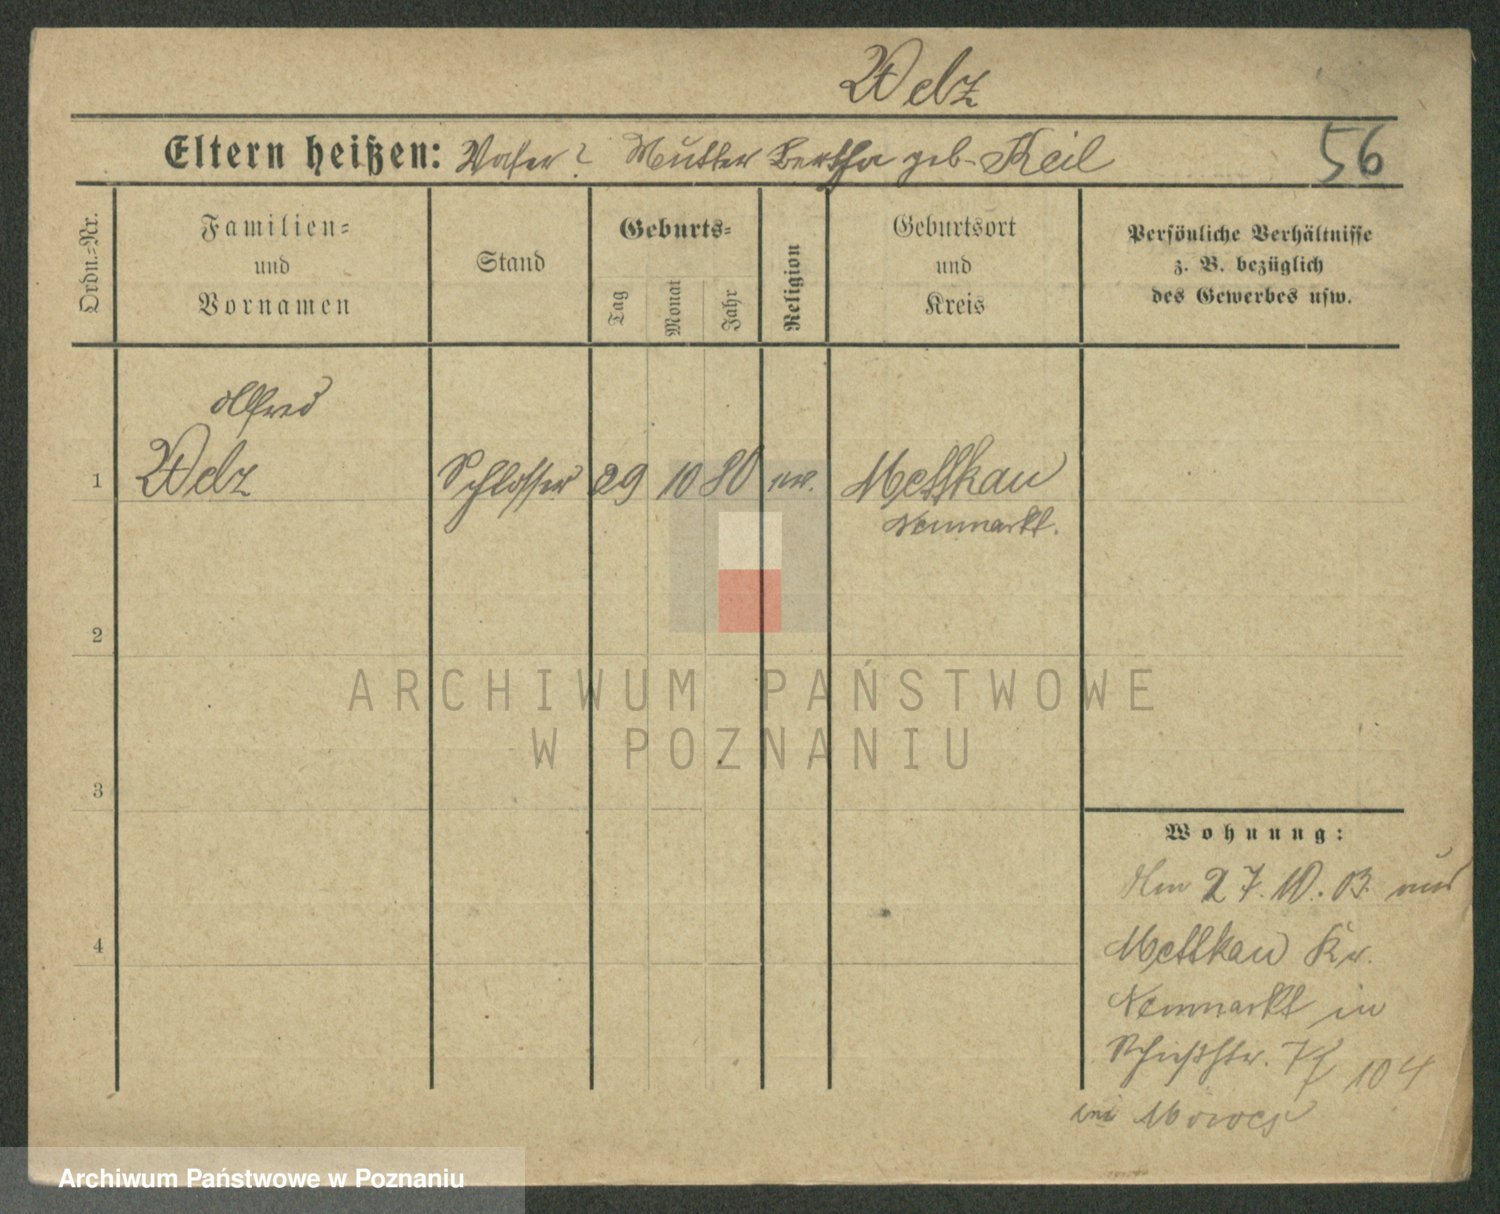 Welz
Eltern heißen: Vater? Mutter Bertha geb. Keil
56
Ordn.-Nr.
Familien-
und
Vornamen
Stand
Geburts-
Tag
Monat
Jahr
Religion
Geburtsort
und
Kreis
Persönliche Verhältnisse
z. B. bezüglich
des Gewerbes usw.
Alfred
1 Welz Schlosser 29 10 80 ev. Mettkau
Neumarkt.
2
3
4
Wohnung:
Am 27. 10. 03. aus
Mettkau Kr.
Neumarkt in
104
bei
ARCHIWUM PAŃSTWOWE
W POZNANIU
Archiwum Państwowe w Poznaniu